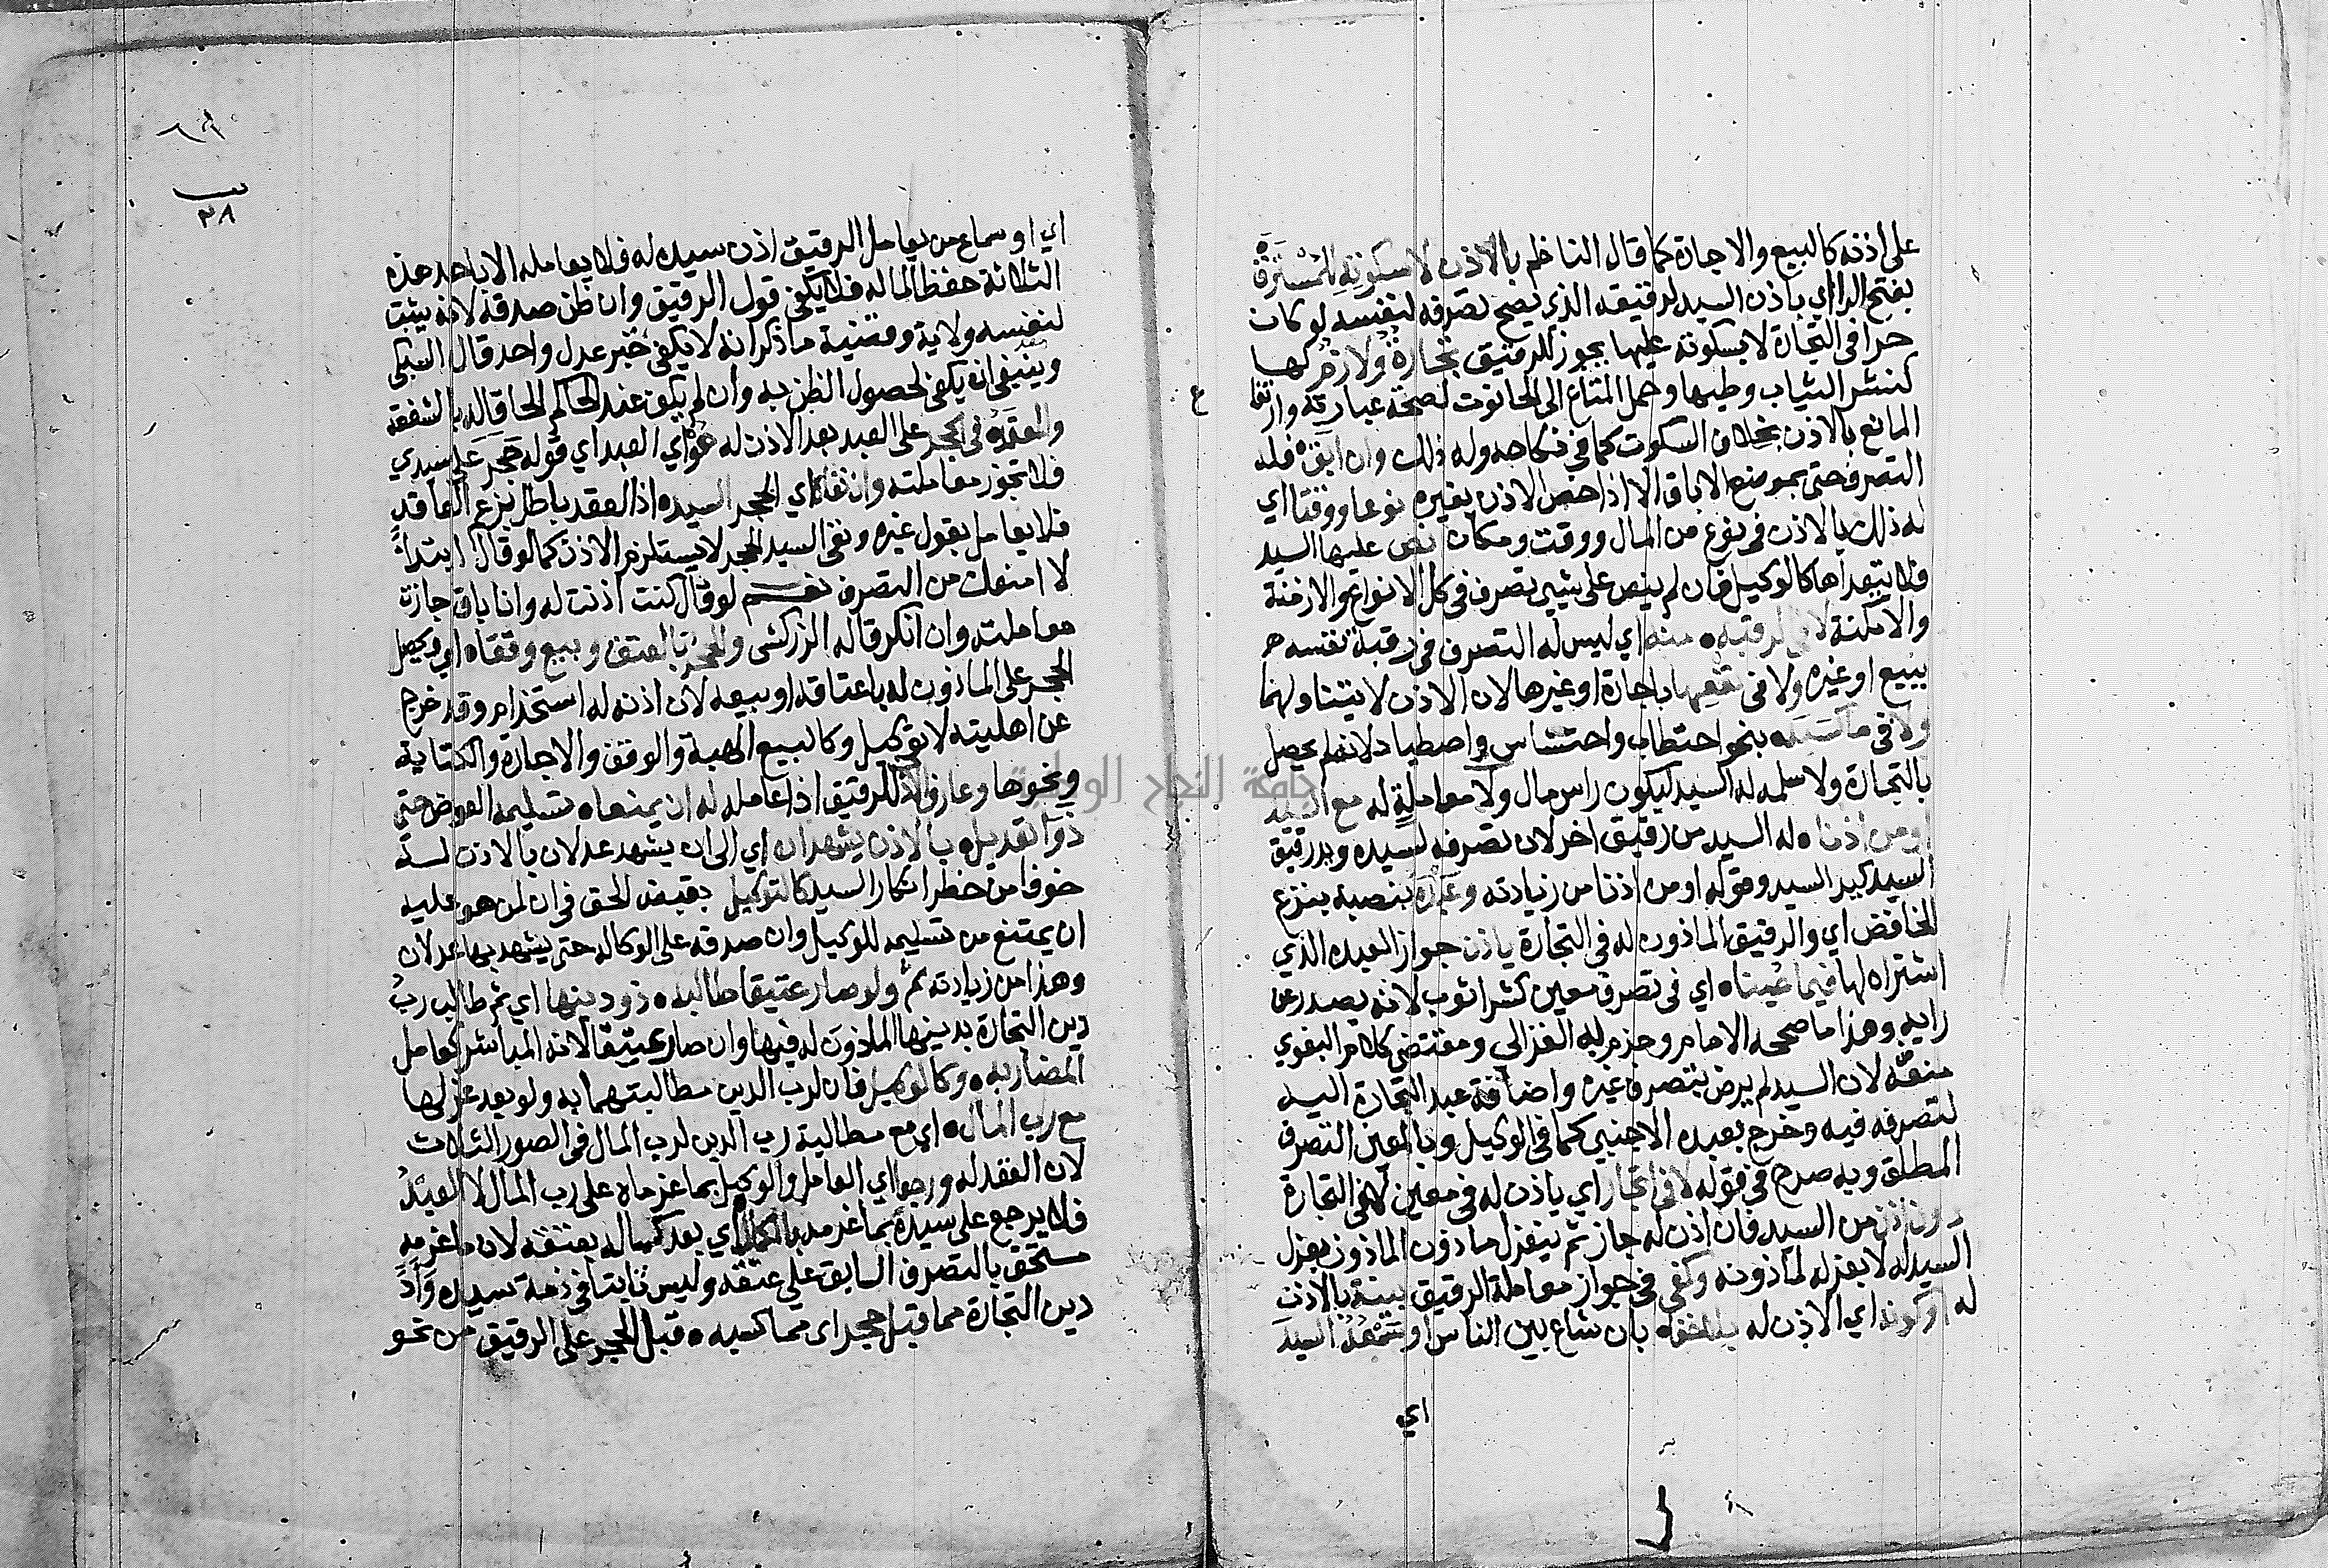 على اذنه كالبيع والاجارة كما قال الناظم بالاذن لا سكوته للمُسْتَرَقَّة
بفتح الرا اي باذن السيد لرقيقه الذي يصح تصرفه لنفسه لو كان
حرا في التجارة لا بسكوته عليها يجوز للرقيق تجارةٌ ولازمٌ لها
كنشر الثياب وطيها وحمل المتاع الى الحانوت لصحة عبارته وارتفا
ع
المانع بالاذن بخلاف السكوت كما في نكاحه وله ذلك وان ابق فله
التصرف حتى بموضع الاباق الا اذا خص الاذن بغيره نوعا ووقتا اي
له ذلك بالاذن في نوع من المال ووقت ومكان نص عليها السيد
فلا يتعداها كالوكيل فان لم ينص على شيي تصرف في كل الانواع والازمنة
والامكنة لا في لرقبه منه اي ليس له التصرف في رقبة نفسه
ببيع او غيره ولا في نفعها باجارة او غيرها لان الاذن لا يتناولهما
ولا في ما كسبه بنحو احتطاب واحتشاش واصطياد لانه لم يحصل
بالتجارة ولا سلمه له السيد ليكون راس مال ولا معاملةٍ له مع السيد
او من اذنا له السيد من رقيق اخر لان تصرفه لسيده ويد رقيق
السيد كيد السيد وقوله او من اذنا من زيادته وعبده بنصبه بنزع
الخافض اي والرقيق الماذون له في التجارة ياذن جواز العبده الذي
اشتراه لها فيما عيناه اي في تصرف معين كشرا ثوب لانه يصدر عن
رايه وهذا ما صححه الامام وجزم به الغزالي ومقتضى كلام البغوي
منعه لان السيد لم يرض بتصرف غيره واضافة عبد التجارة اليه
لتصرفه فيه وخرج بعبده الاجنبي كما في الوكيل وبالمعين التصرف
المطلق وبه صرح في قوله لا في اتجار اي ياذن له في معين لا في التجارة
دون اذن من السيد فان اذن له جاز ثم ينعزل ماذون الماذون بعزل
السيد له لا بعزله لماذونه وكفى في جواز معاملة الرقيق بينة بالاذن
له او كونه اي الاذن له بلا خفاه بان شاع بين الناس او سَمْعُهُ السيدَ
اي
٦٩
ب
٢٨
اي او سماع من يعامل الرقيق اذن سيده له فلا يعامله الا باحد هذه
الثلاثة حفظا لماله فلا يكفي قول الرقيق وان ظن صدقه لانه يثبت
لنفسه ولاية وقضية ما ذكر انه لا يكفي خبر عدل واحد قال السبكي
وينبغي ان يكفي لحصول الظن به وان لم يكف عند الحاكم الحاقا له بالشفعة
والعمدة في الحجر على العبد بعد الاذن له هو اي العبد اي قوله حَجَر علي سيدي
فلا تجوز معاملته وان نفا اي الحجر السيده اذ العقد باطل بزعم العاقد
فلا يعامل بقول غيره ونفي السيد الحجر لا يستلزم الاذن كما لو قال ابتداءً
لا امنعك من التصرف نعم لو قال كنت اذنت له وانا باق جازت
معاملته وان انكر قاله الزركشي والحجرُ بالعتق وبيع وقفاه اي ويحصل
الحجر على الماذون له باعتاقه او بيعه لان اذنه له استخدام وقد خرج
عن اهليته لا توكيل وكالبيع الهبة والوقف والاجارة والكتابة
ونحوها وعارف الاذن للرقيق اذا عامله له ان يمنعاه تسليمه العوض حتى
ذوا تعديل بالاذن يشهدان اي الى ان يشهد عدلان بالاذن له
خوفا من خطر انكار السيد كالتوكيل بقبض الحق في ان لمن هو عليه
ان يمتنع من تسليمه للوكيل وان صدقه على الوكالة حتى يشهد بها عدلان
وهذا من زيادته ثُمَّ ولو صار عتيقا طالبه ذو دينها اي ثم طالب ربُّ
دين التجارة بدينها الماذون له فيها وان صار عتيقا لانه المباشر كعامل
المضاربه وكالوكيل فان لرب الدين مطالبتهما به ولو بعد عزلهما
مع رب المال اي مع مطالبة رب الدين لرب المال في الصور الثلاث
لان العقد له ورجعا اي العامل والوكيل بما غرماه على رب المال لا العبدُ
فلا يرجع على سيده بما غرمه بالكمال اي بعد كماله بعتقه لان ما غرمه
مستحق بالتصرف السابق على عتقه وليس ثابتا في ذمة سيده وَأَدِّ
دين التجارة مما قبل حجر اي مما كسبه قبل الحجر على الرقيق من نحو
جامعة النجاح الوطنية